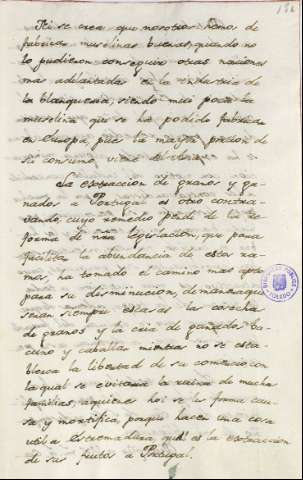 Ni se crea que nosotros hemos de
fabricar muselinas buenas, quando no
lo pudieron conseguir otras naciones
mas adelantadas en la industria de
la blanqueria, siendo mui poca la
muselina que se ha podido fabricar
en Europa, pues la mayor porcion de
su consumo, viene de Asia.
La extraccion de granos y ga-
nados a Portugal es otro contra-
vando, cuyo remedio pende de la re-
forma de nra legislacion, que para
facilitar la abundancia de estos ra-
mos, ha tomado el camino mas apto
para su disminucion, de manera que
seran siempre escasas las cosechas
de granos y la cria de ganados ba-
cuno y caballar mientras no se esta-
blezca la libertad de su comercio con
la qual se evitaria la ruina de muchas
familias, a quienes hoi se les forma cau-
sa y mortifica, porque hacen una cosa
util a Estremadura, qual es la extraccion
de sus frutos a Portugal.